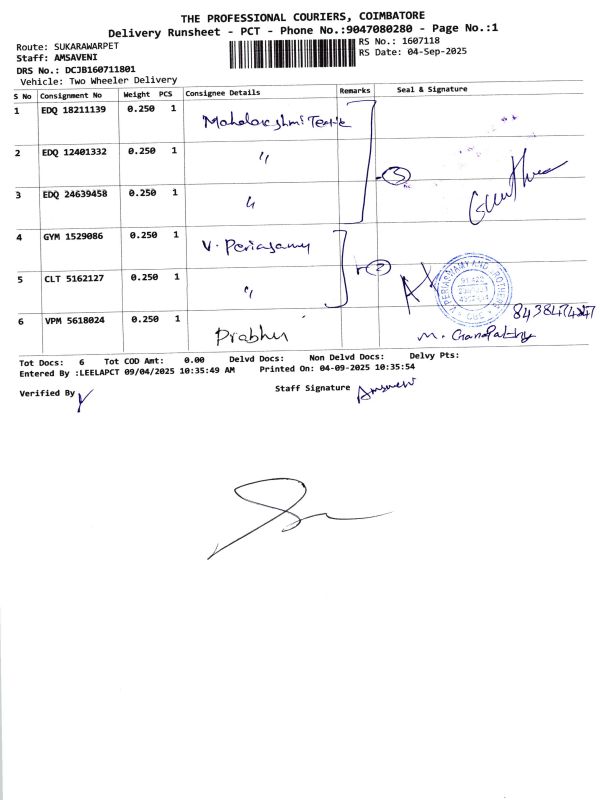 THE PROFESSIONAL COURIERS, COIMBATORE
Delivery Runsheet - PCT - Phone No.:9047080280 - Page No.:1
Route: SUKARAWARPET
RS No.: 1607118
Staff: AMSAVENI
RS Date: 04-Sep-2025
DRS No.: DCJB160711801
Vehicle: Two Wheeler Delivery
S No Consignment No Weight PCS Consignee Details Remarks Seal & Signature
1 EDQ 18211139 0.250 1 Mahalakshmi
2 EDQ 12401332 0.250 1 "
3 EDQ 24639458 0.250 1 "
4 GYM 1529086 0.250 1 V. Periasamy
5 CLT 5162127 0.250 1 "
6 VPM 5618024 0.250 1 Prabhu
V.PERIASWAMY AND BROTHERS
Tot Docs: 6 Tot COD Amt: 0.00 Delvd Docs: Non Delvd Docs: Delvy Pts:
Entered By :LEELAPCT 09/04/2025 10:35:49 AM Printed On: 04-09-2025 10:35:54
Verified By
Staff Signature Amsaveni